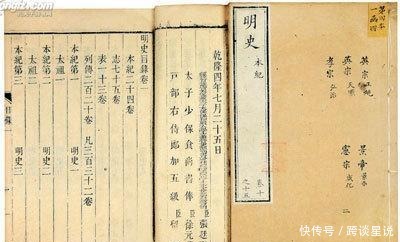 第四本
一函四
英宗 正統 景帝 景泰
英宗 天順 憲宗 成化
孝宗 弘治
三
明史 本紀
卷十
之十五
乾隆四年七月二十五日
太子少保食尚書俸臣徐元
戶部右侍郎加五級臣
明史目錄卷一
本紀二十四卷
志七十五卷
表一十三卷
列傳二百二十卷 凡三百三十二卷
本紀第一 明史一
太祖一
本紀第二 明史二
太祖二
本紀第三 明史三
目錄
快传号/跨谈星说